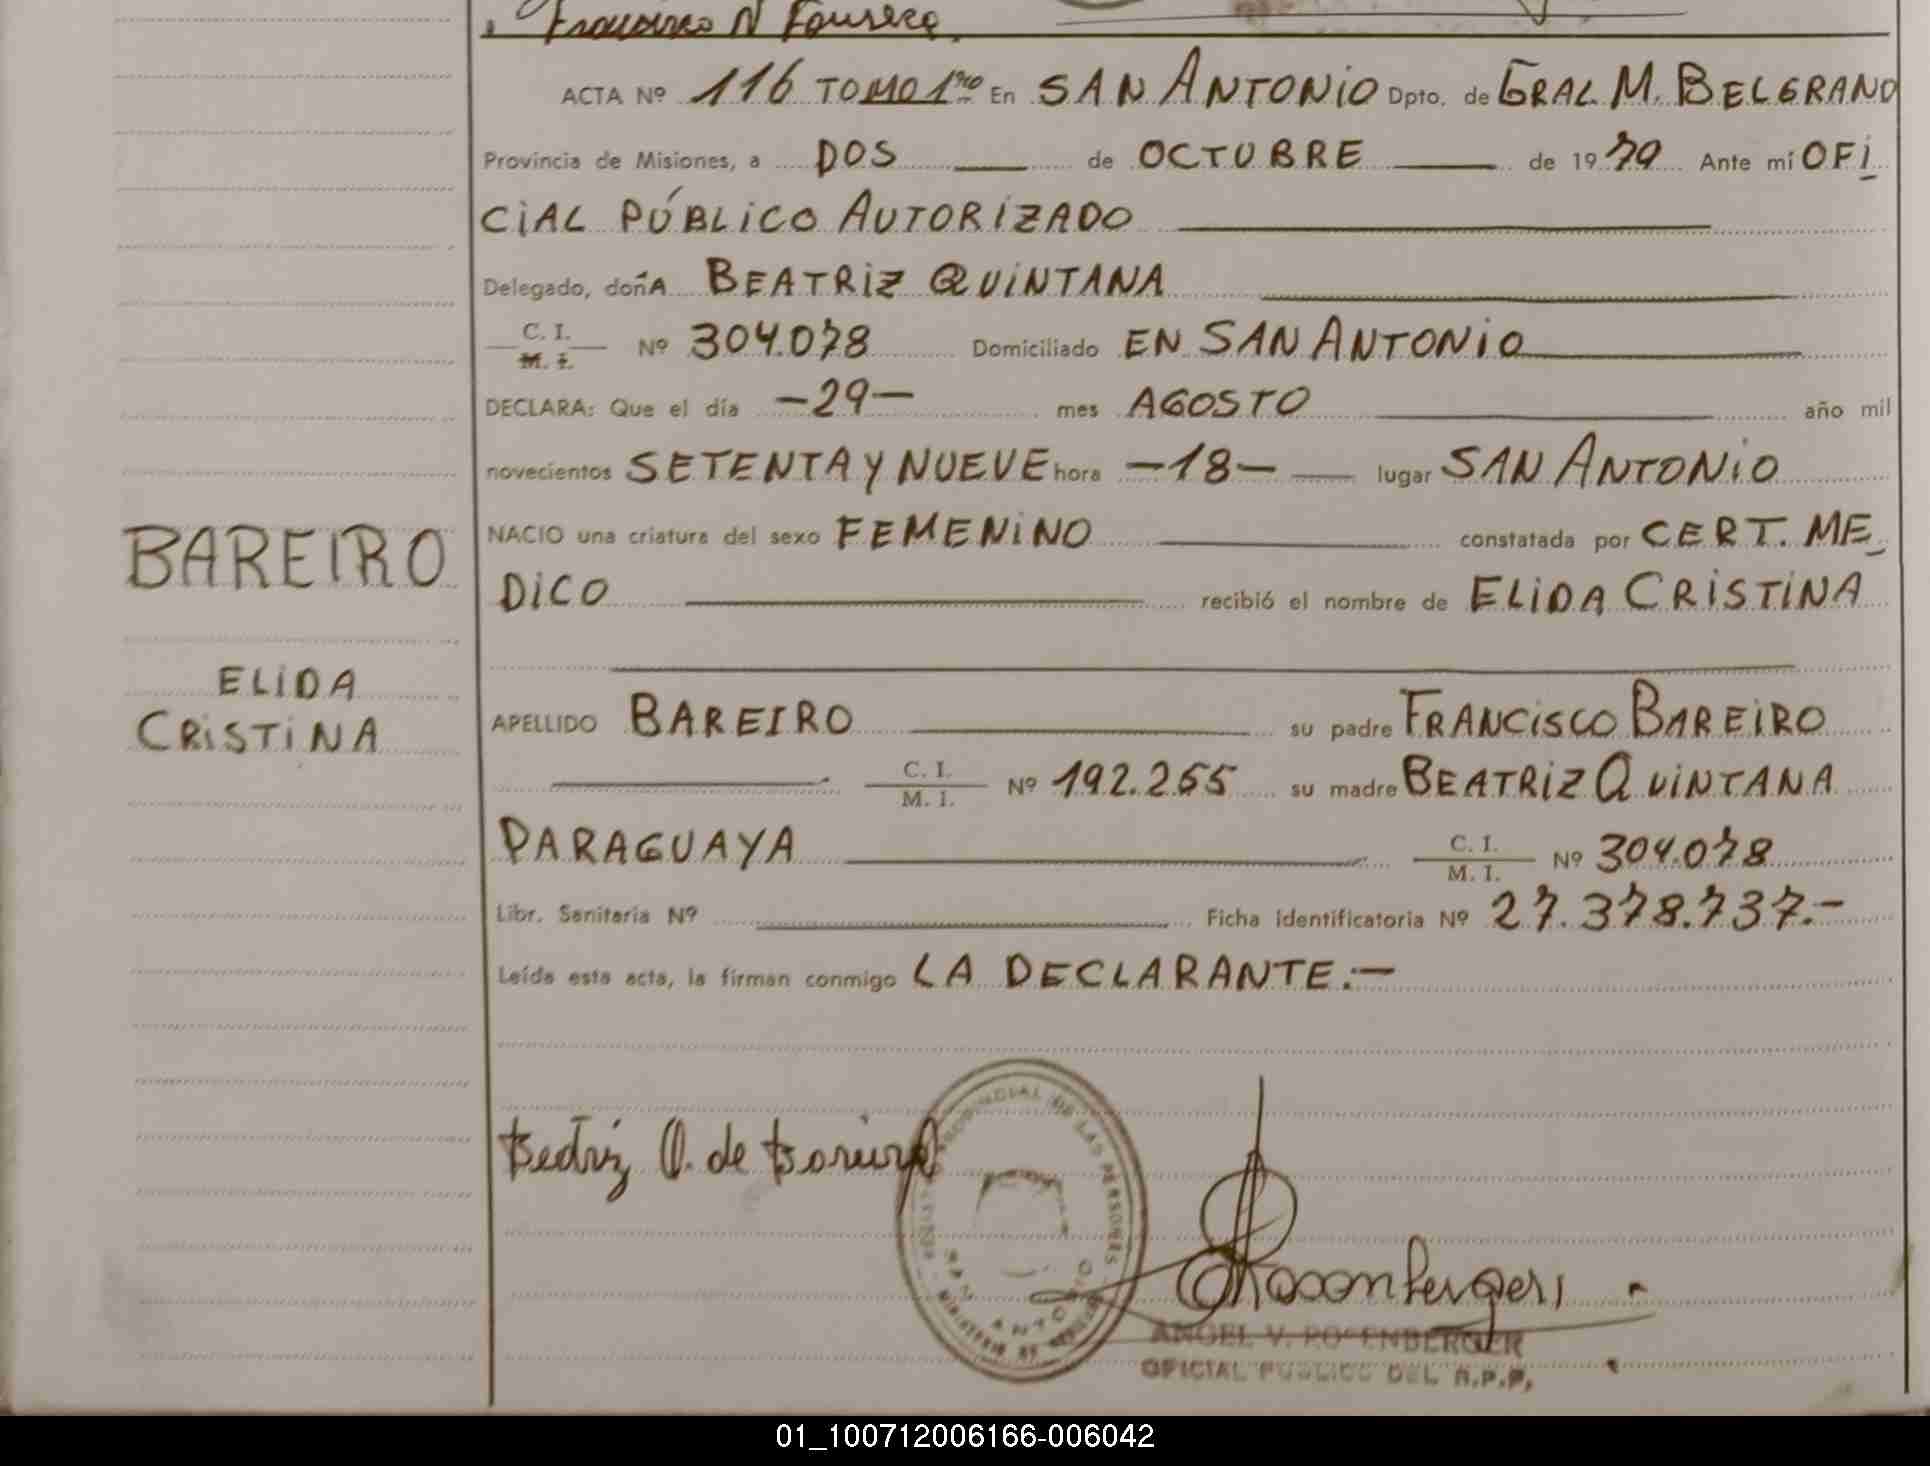 Francisco N Fonseca.
ACTA Nº 116 TOMO 1ro En SAN ANTONIO Dpto. de GRAL M. BELGRANO
Provincia de Misiones, a DOS de OCTUBRE de 1979 Ante mí OFI
CIAL PÚBLICO AUTORIZADO
Delegado, doñA BEATRIZ QUINTANA
C. I.
M. I. Nº 304.078 Domiciliado EN SAN ANTONIO
DECLARA: Que el día -29- mes AGOSTO año mil
novecientos SETENTA Y NUEVE hora -18- lugar SAN ANTONIO
NACIO una criatura del sexo FEMENINO constatada por CERT. ME
DICO recibió el nombre de ELIDA CRISTINA
BAREIRO
ELIDA
CRISTINA
APELLIDO BAREIRO su padre FRANCISCO BAREIRO
C. I.
M. I. Nº 192.255 su madre BEATRIZ QUINTANA
PARAGUAYA C. I.
M. I. Nº 304.078
Libr. Sanitaria Nº Ficha identificatoria Nº 27.378.737.-
Leída esta acta, la firman conmigo LA DECLARANTE.-
Beatriz Q. de Bareiro
REGISTRO PROVINCIAL DE LAS PERSONAS
SAN ANTONIO
Rosenberger
ANGEL V. ROSENBERGER
OFICIAL PUBLICO DEL R.P.P.
01_100712006166-006042